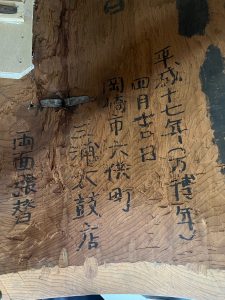 平成十七年(万博年)
四月吉日
岡崎市六供町
三浦太鼓店
両面張替